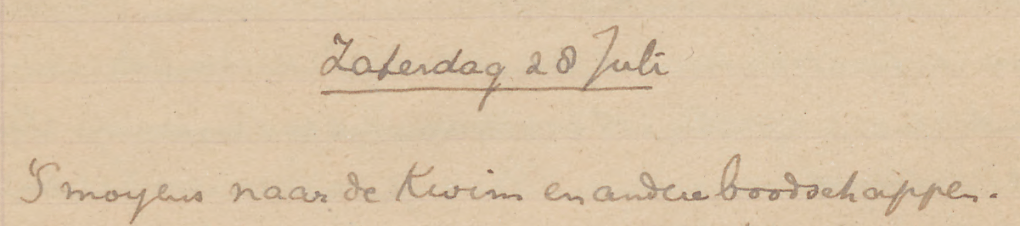 Zaterdag 28 Juli
'S morgens naar de Kwim en andere boodschappen.